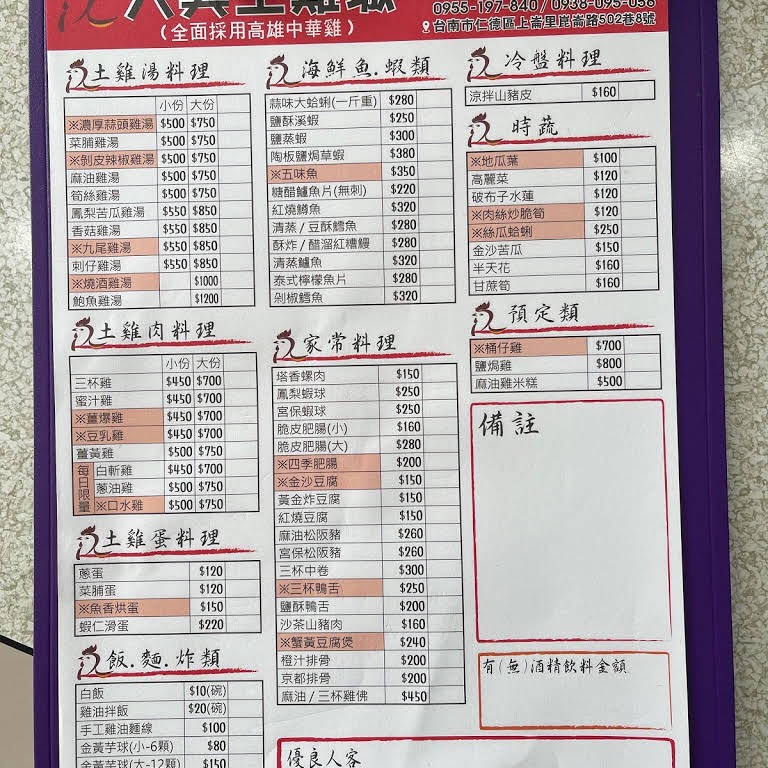 (全面採用高雄中華雞)
0955-197-840 / 0938-095-056
台南市仁德區上崙里崑崙路502巷8號
土雞湯料理
小份 大份
※濃厚蒜頭雞湯 $500 $750
菜脯雞湯 $500 $750
※剝皮辣椒雞湯 $500 $750
麻油雞湯 $500 $750
筍絲雞湯 $500 $750
鳳梨苦瓜雞湯 $550 $850
香菇雞湯 $550 $850
※九尾雞湯 $550 $850
刺仔雞湯 $550 $850
※燒酒雞湯 $1000
鮑魚雞湯 $1200
土雞肉料理
小份 大份
三杯雞 $450 $700
蜜汁雞 $450 $700
※薑爆雞 $450 $700
※豆乳雞 $450 $700
薑黃雞 $500 $750
每日限量
白斬雞 $450 $700
蔥油雞 $500 $750
※口水雞 $500 $750
土雞蛋料理
蔥蛋 $120
菜脯蛋 $120
※魚香烘蛋 $150
蝦仁滑蛋 $220
飯.麵.炸類
白飯 $10(碗)
雞油拌飯 $20(碗)
手工雞油麵線 $100
金黃芋球(小-6顆) $80
金黃芋球(大-12顆) $150
海鮮魚.蝦類
蒜味大蛤蜊(一斤重) $280
鹽酥溪蝦 $250
鹽蒸蝦 $300
陶板鹽焗草蝦 $380
※五味魚 $350
糖醋鱸魚片(無刺) $220
紅燒鱒魚 $320
清蒸/豆酥鱈魚 $280
酥炸/醋溜紅糟鰻 $280
清蒸鱸魚 $320
泰式檸檬魚片 $280
剁椒鱈魚 $320
家常料理
塔香螺肉 $150
鳳梨蝦球 $250
宮保蝦球 $250
脆皮肥腸(小) $160
脆皮肥腸(大) $280
※四季肥腸 $200
※金沙豆腐 $150
黃金炸豆腐 $150
紅燒豆腐 $150
麻油松阪豬 $260
宮保松阪豬 $260
三杯中卷 $300
※三杯鴨舌 $250
鹽酥鴨舌 $200
沙茶山豬肉 $160
※蟹黃豆腐煲 $240
橙汁排骨 $200
京都排骨 $200
麻油/三杯雞佛 $450
優良人客
冷盤料理
涼拌山豬皮 $160
時蔬
※地瓜葉 $100
高麗菜 $120
破布子水蓮 $120
※肉絲炒脆筍 $120
※絲瓜蛤蜊 $250
金沙苦瓜 $150
半天花 $160
甘蔗筍 $160
預定類
※桶仔雞 $700
鹽焗雞 $800
麻油雞米糕 $500
備註
有(無)酒精飲料金額